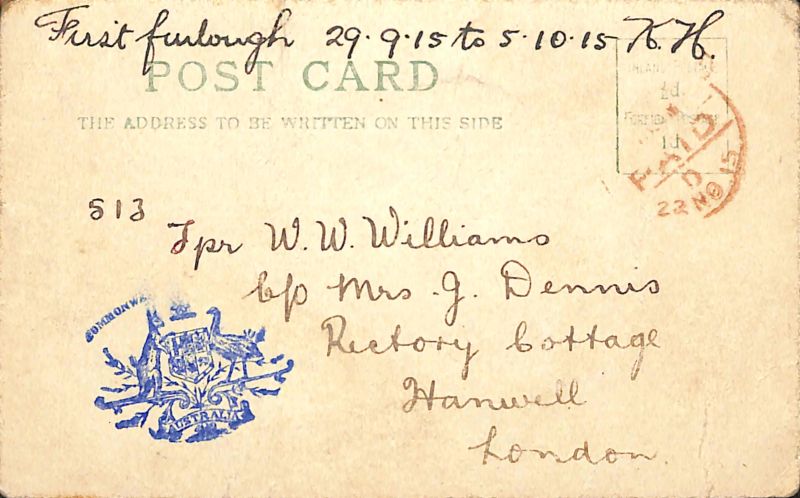 First furlough 29·9·15 to 5·10·15 H.H.
POST CARD
THE ADDRESS TO BE WRITTEN ON THIS SIDE
INLAND
½d.
FOREIGN
1d.
PAID
D
22 NO 15
513
Tpr W. W. Williams
c/o Mrs. J. Dennis
Rectory Cottage
Hanwell
London.
COMMONWE
AUSTRALIA